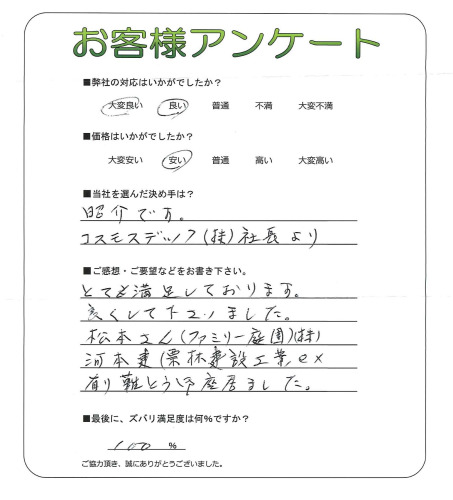 お客様アンケート
■弊社の対応はいかがでしたか？
大変良い 良い 普通 不満 大変不満
■価格はいかがでしたか？
大変安い 安い 普通 高い 大変高い
■当社を選んだ決め手は？
紹介です。
コスモスデック(株)社長より
■ご感想・ご要望などをお書き下さい。
とても満足しております。
良くして下さいました。
松本さん(ファミリー庭園)(株)
河本建(栗林建設工業
有り難とう御座居ました。
■最後に、ズバリ満足度は何%ですか？
100 %
ご協力頂き、誠にありがとうございました。